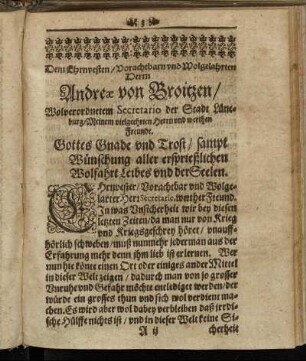 Dem Ehrnvesten / Vorachtbarn vnd Wolgelahrten
Herrn
Andreæ von Broitzen /
Wolverordnetem Secretario der Stadt Lüne-
burg / Meinem vielgeehrten Herrn vnd werthen
Freunde.
Gottes Gnade vnd Trost / sampt
Wünschung aller ersprießlichen
Wolfahrt Leibes vnd der Seelen.
EHrnvester / Vorachtbar vnd Wolge-
larter Herr Secretarie, werther Freund.
In was Vnsicherheit wir bey diesen
letzten Zeiten / da man nur von Krieg
vnd Kriegsgeschrey höret / vnauff-
hörlich schweben / muß nunmehr jederman aus der
Erfahrung mehr denn ihm lieb ist erlernen. Wer
nun hie könte einen Ort oder einiges ander Mittel
in dieser Welt zeigen / dadurch man von so grosser
Vnruhe vnd Gefahr möchte entlediget werden / der
würde ein grosses thun vnd sich wol verdient ma-
chen. Es wird aber wol dabey verbleiben daß jrrdi-
sche Hülffe nichts ist / vnd in dieser Welt keine Si-
A ij cherheit